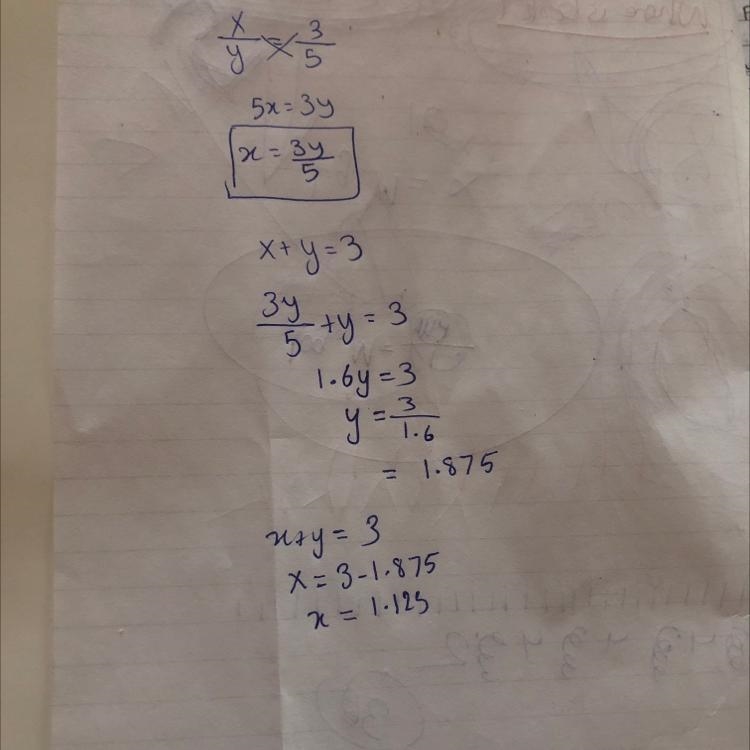 x/y = 3/5
5x = 3y
x = 3y/5
x + y = 3
3y/5 + y = 3
1.6y = 3
y = 3/1.6
= 1.875
x + y = 3
x = 3 - 1.875
x = 1.125